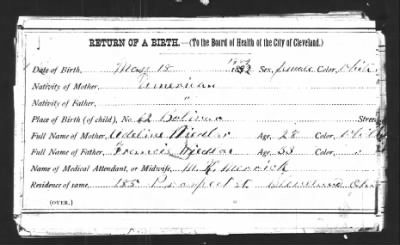 RETURN OF A BIRTH.—(To the Board of Health of the City of Cleveland.)
Date of Birth, May 18 1882 Sex, female Color, White
Nativity of Mother, American
Nativity of Father, "
Place of Birth (of child), No. 62 Bolivar Street
Full Name of Mother, Adeline Age, 28 Color, White
Full Name of Father, Francis Age, 33 Color, "
Name of Medical Attendant, or Midwife, M. K. Merrick
Residence of same, 185 Prospect st. Cleveland Ohio
(OVER.)